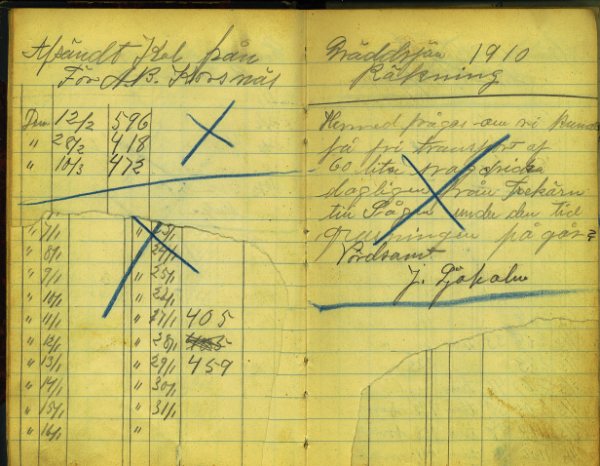 Afsändt Kol från
För A.B. Korsnäs
Den 12/2 596
" 28/2 418
" 10/3 472
" 7/1 " 23/1
" 8/1 " 24/1
" 9/1 " 25/1
" 10/1 "
" 11/1 " 27/1 405
" 12/1 " 28/1
" 13/1 " 29/1 459
" 14/1 " 30/1
" 15/1 " 31/1
" 16/1 "
1910
Räkning
Hermed frågas om vi kunde
få fri transport af
60 liter
dagligen från
till Såge under den tid
pågår?
Vördsamt
J.